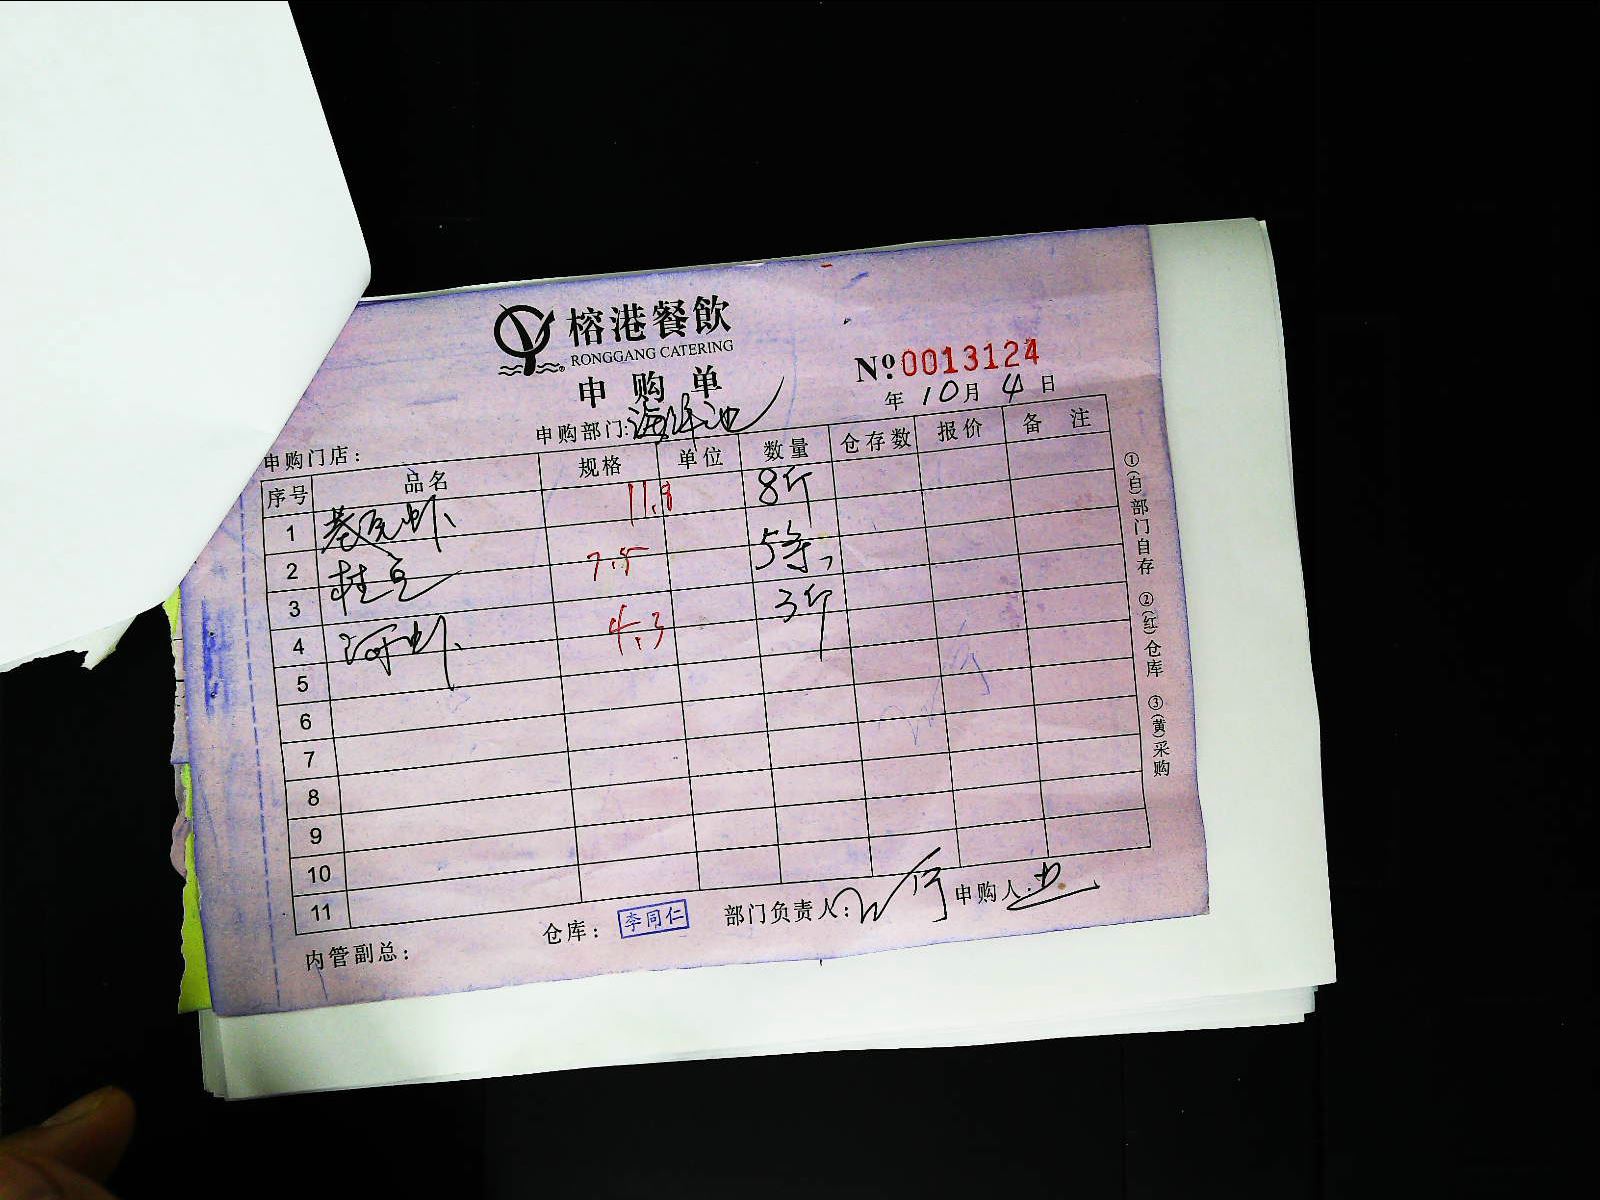 榕港餐飲
RONGGANG CATERING
申购单
№0013124
年 10 月 4 日
申购门店： 申购部门：海鲜池
序号 品名 规格 单位 数量 仓存数 报价 备注
1 基围虾 11.8 8斤
2 7.5 5条
3 桂鱼 3斤
4 河虾 4.3
5
6
7
8
9
10
11
内管副总： 仓库： 李同仁 部门负责人： 申购人：
①(白)部门自存 ②(红)仓库 ③(黄)采购